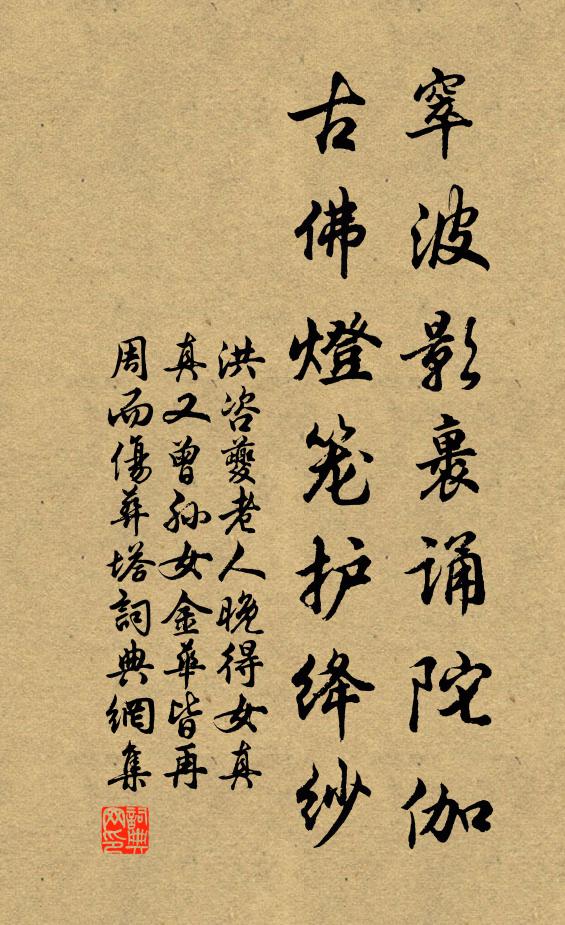 窣波影裹诵陀伽
古佛燈笼护绛纱
洪咨夔老人晚得女真
真又曾孫女金華皆再
周而傷葬塔詞典網集
詞典网印